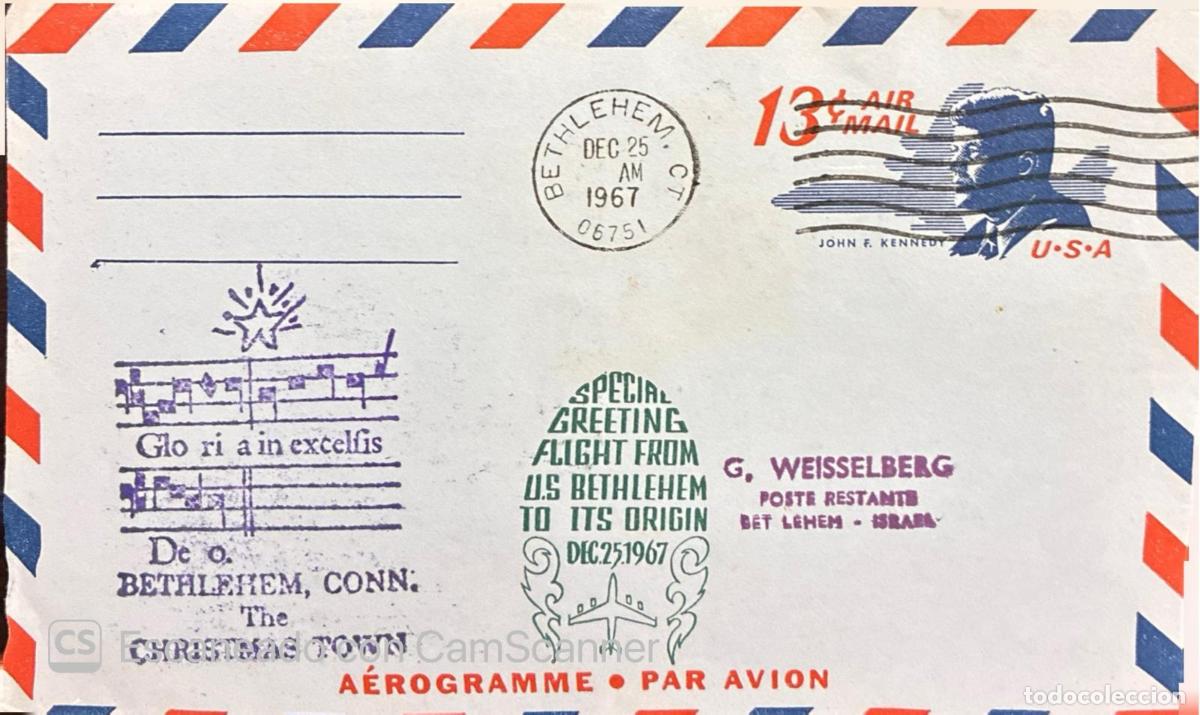 BETHLEHEM, CT
DEC 25
AM
1967
06751
13¢ AIR
MAIL
JOHN F. KENNEDY
U•S•A
Glo ri a in excelſis
De o.
BETHLEHEM, CONN.
The
CHRISTMAS TOWN
SPECIAL
GREETING
FLIGHT FROM
U.S BETHLEHEM
TO ITS ORIGIN
DEC.25.1967
G. WEISSELBERG
POSTE RESTANTE
BET LEHEM - ISRAEL
CS Escaneado con CamScanner
AÉROGRAMME • PAR AVION
todocoleccion